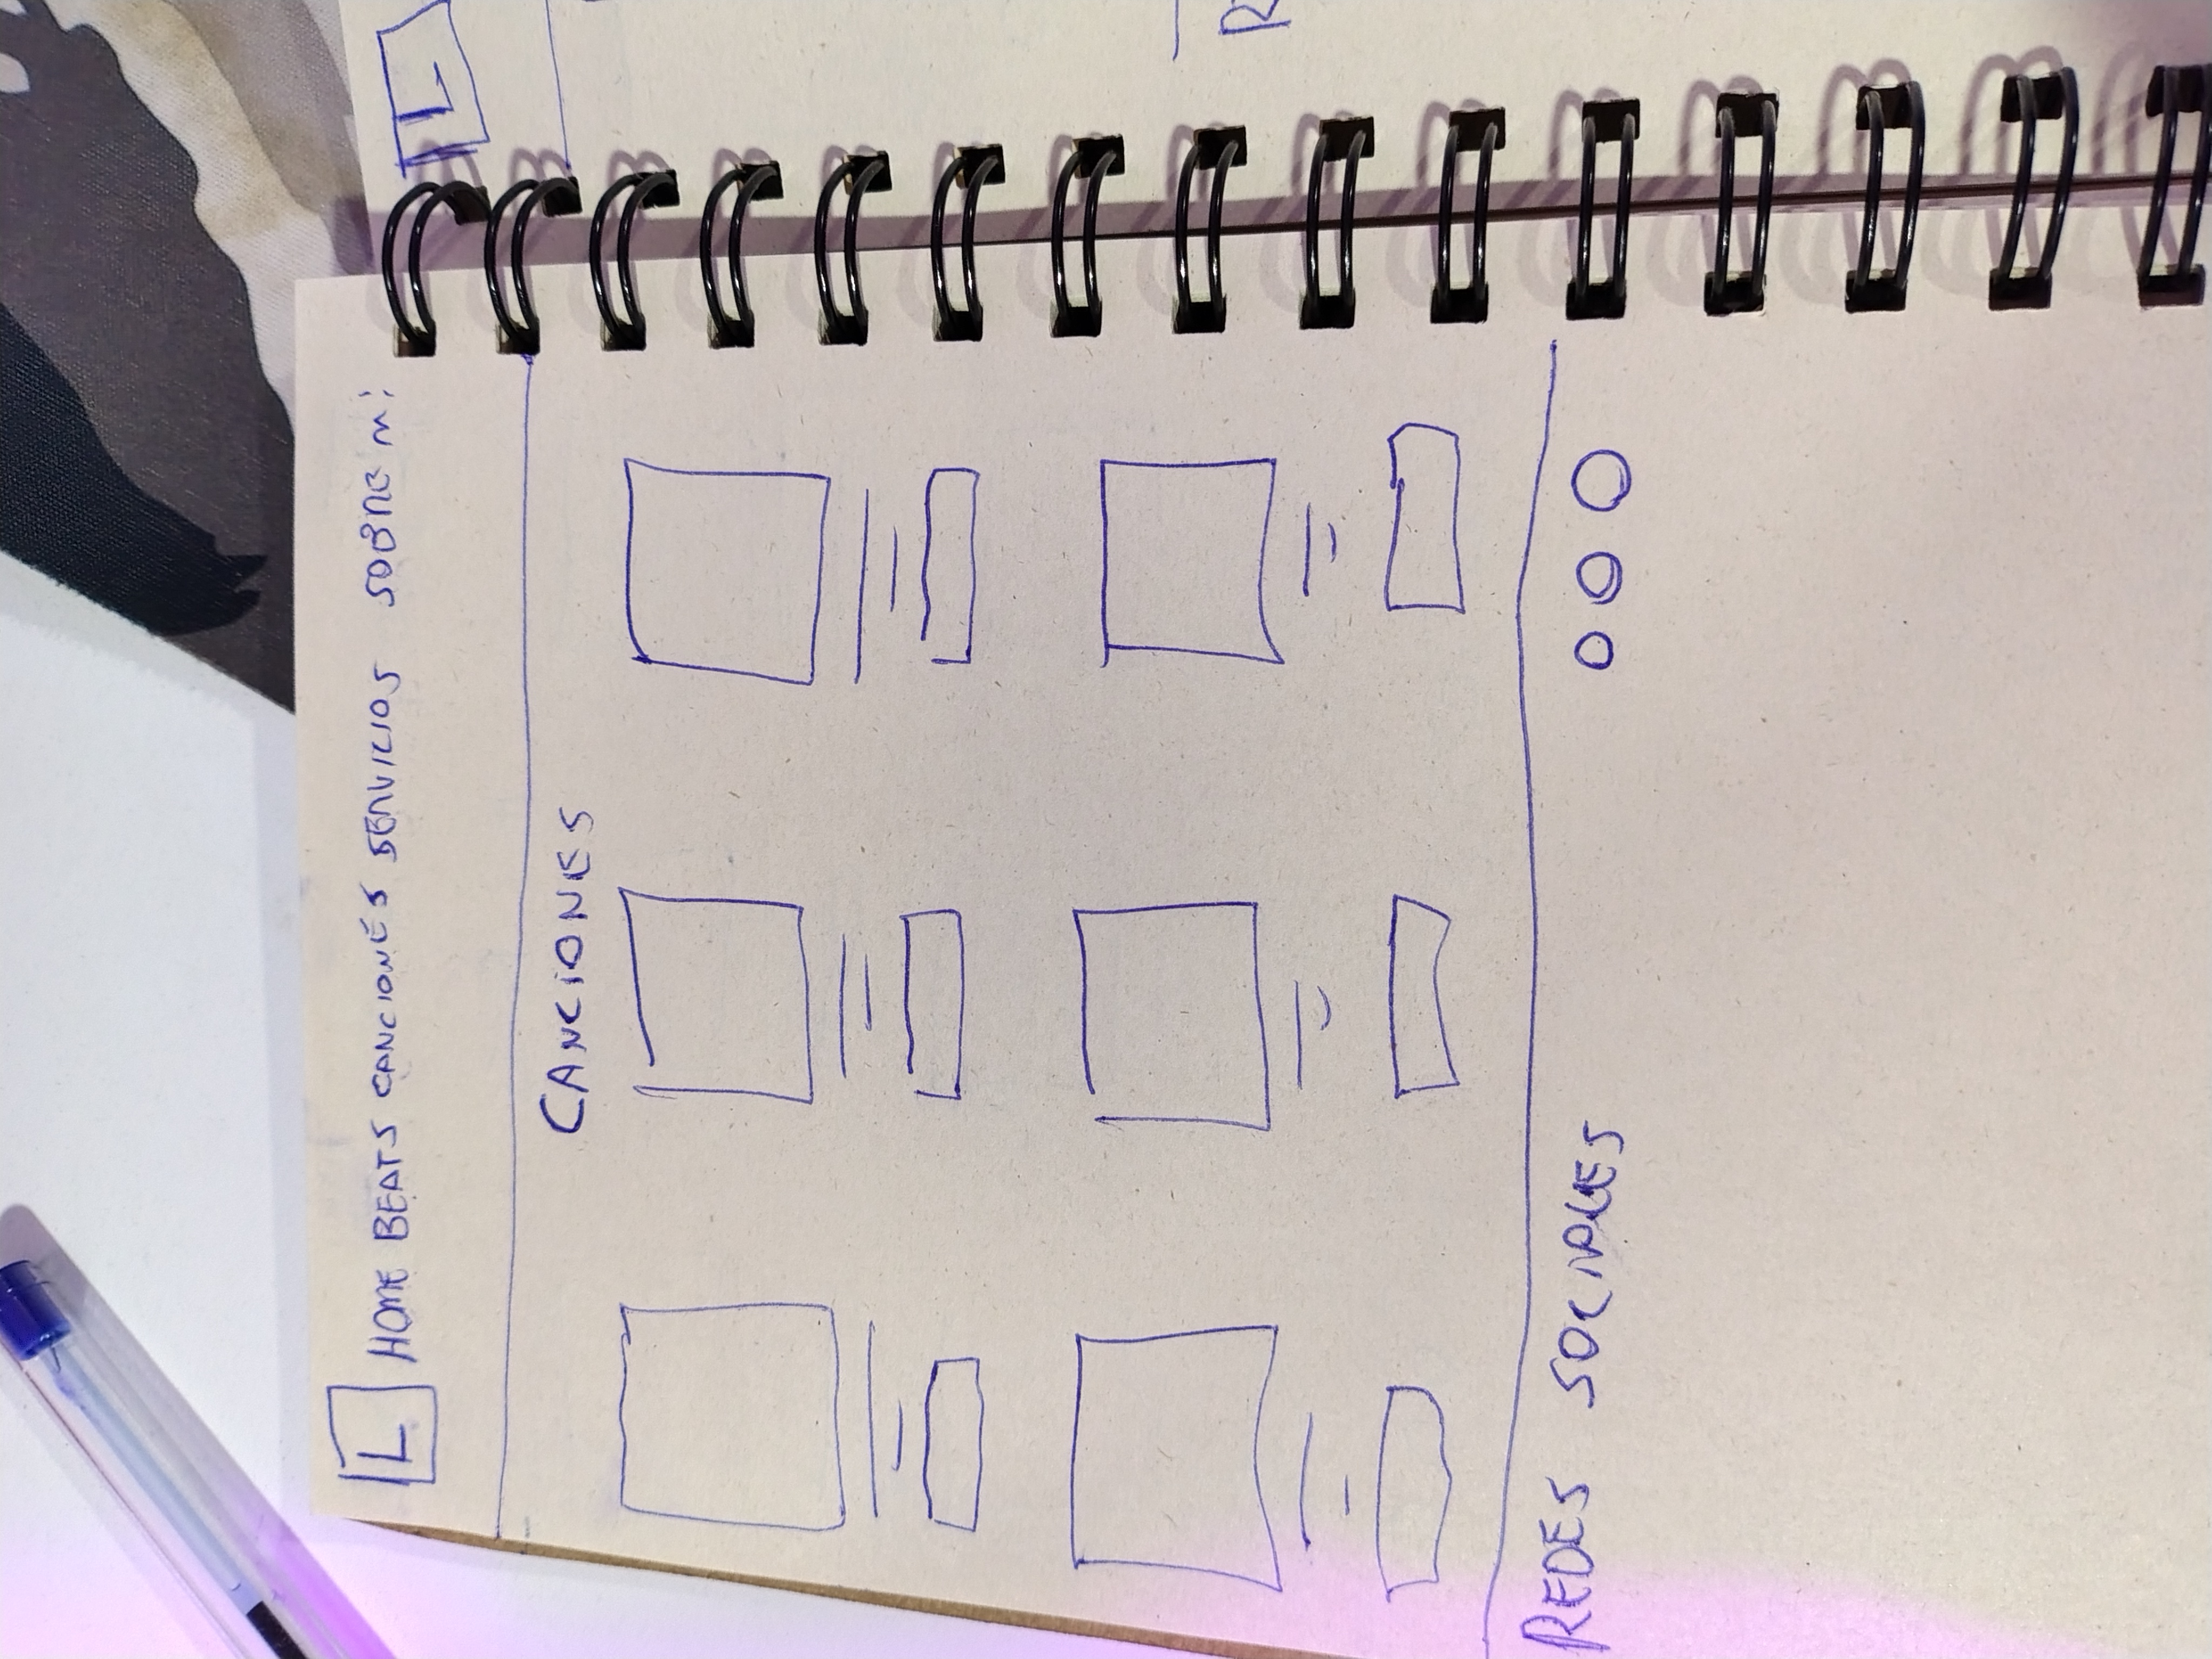 L HOME BEATS CANCIONES SERVICIOS SOBRE mi
CANCIONES
REDES SOCIALES
L
R